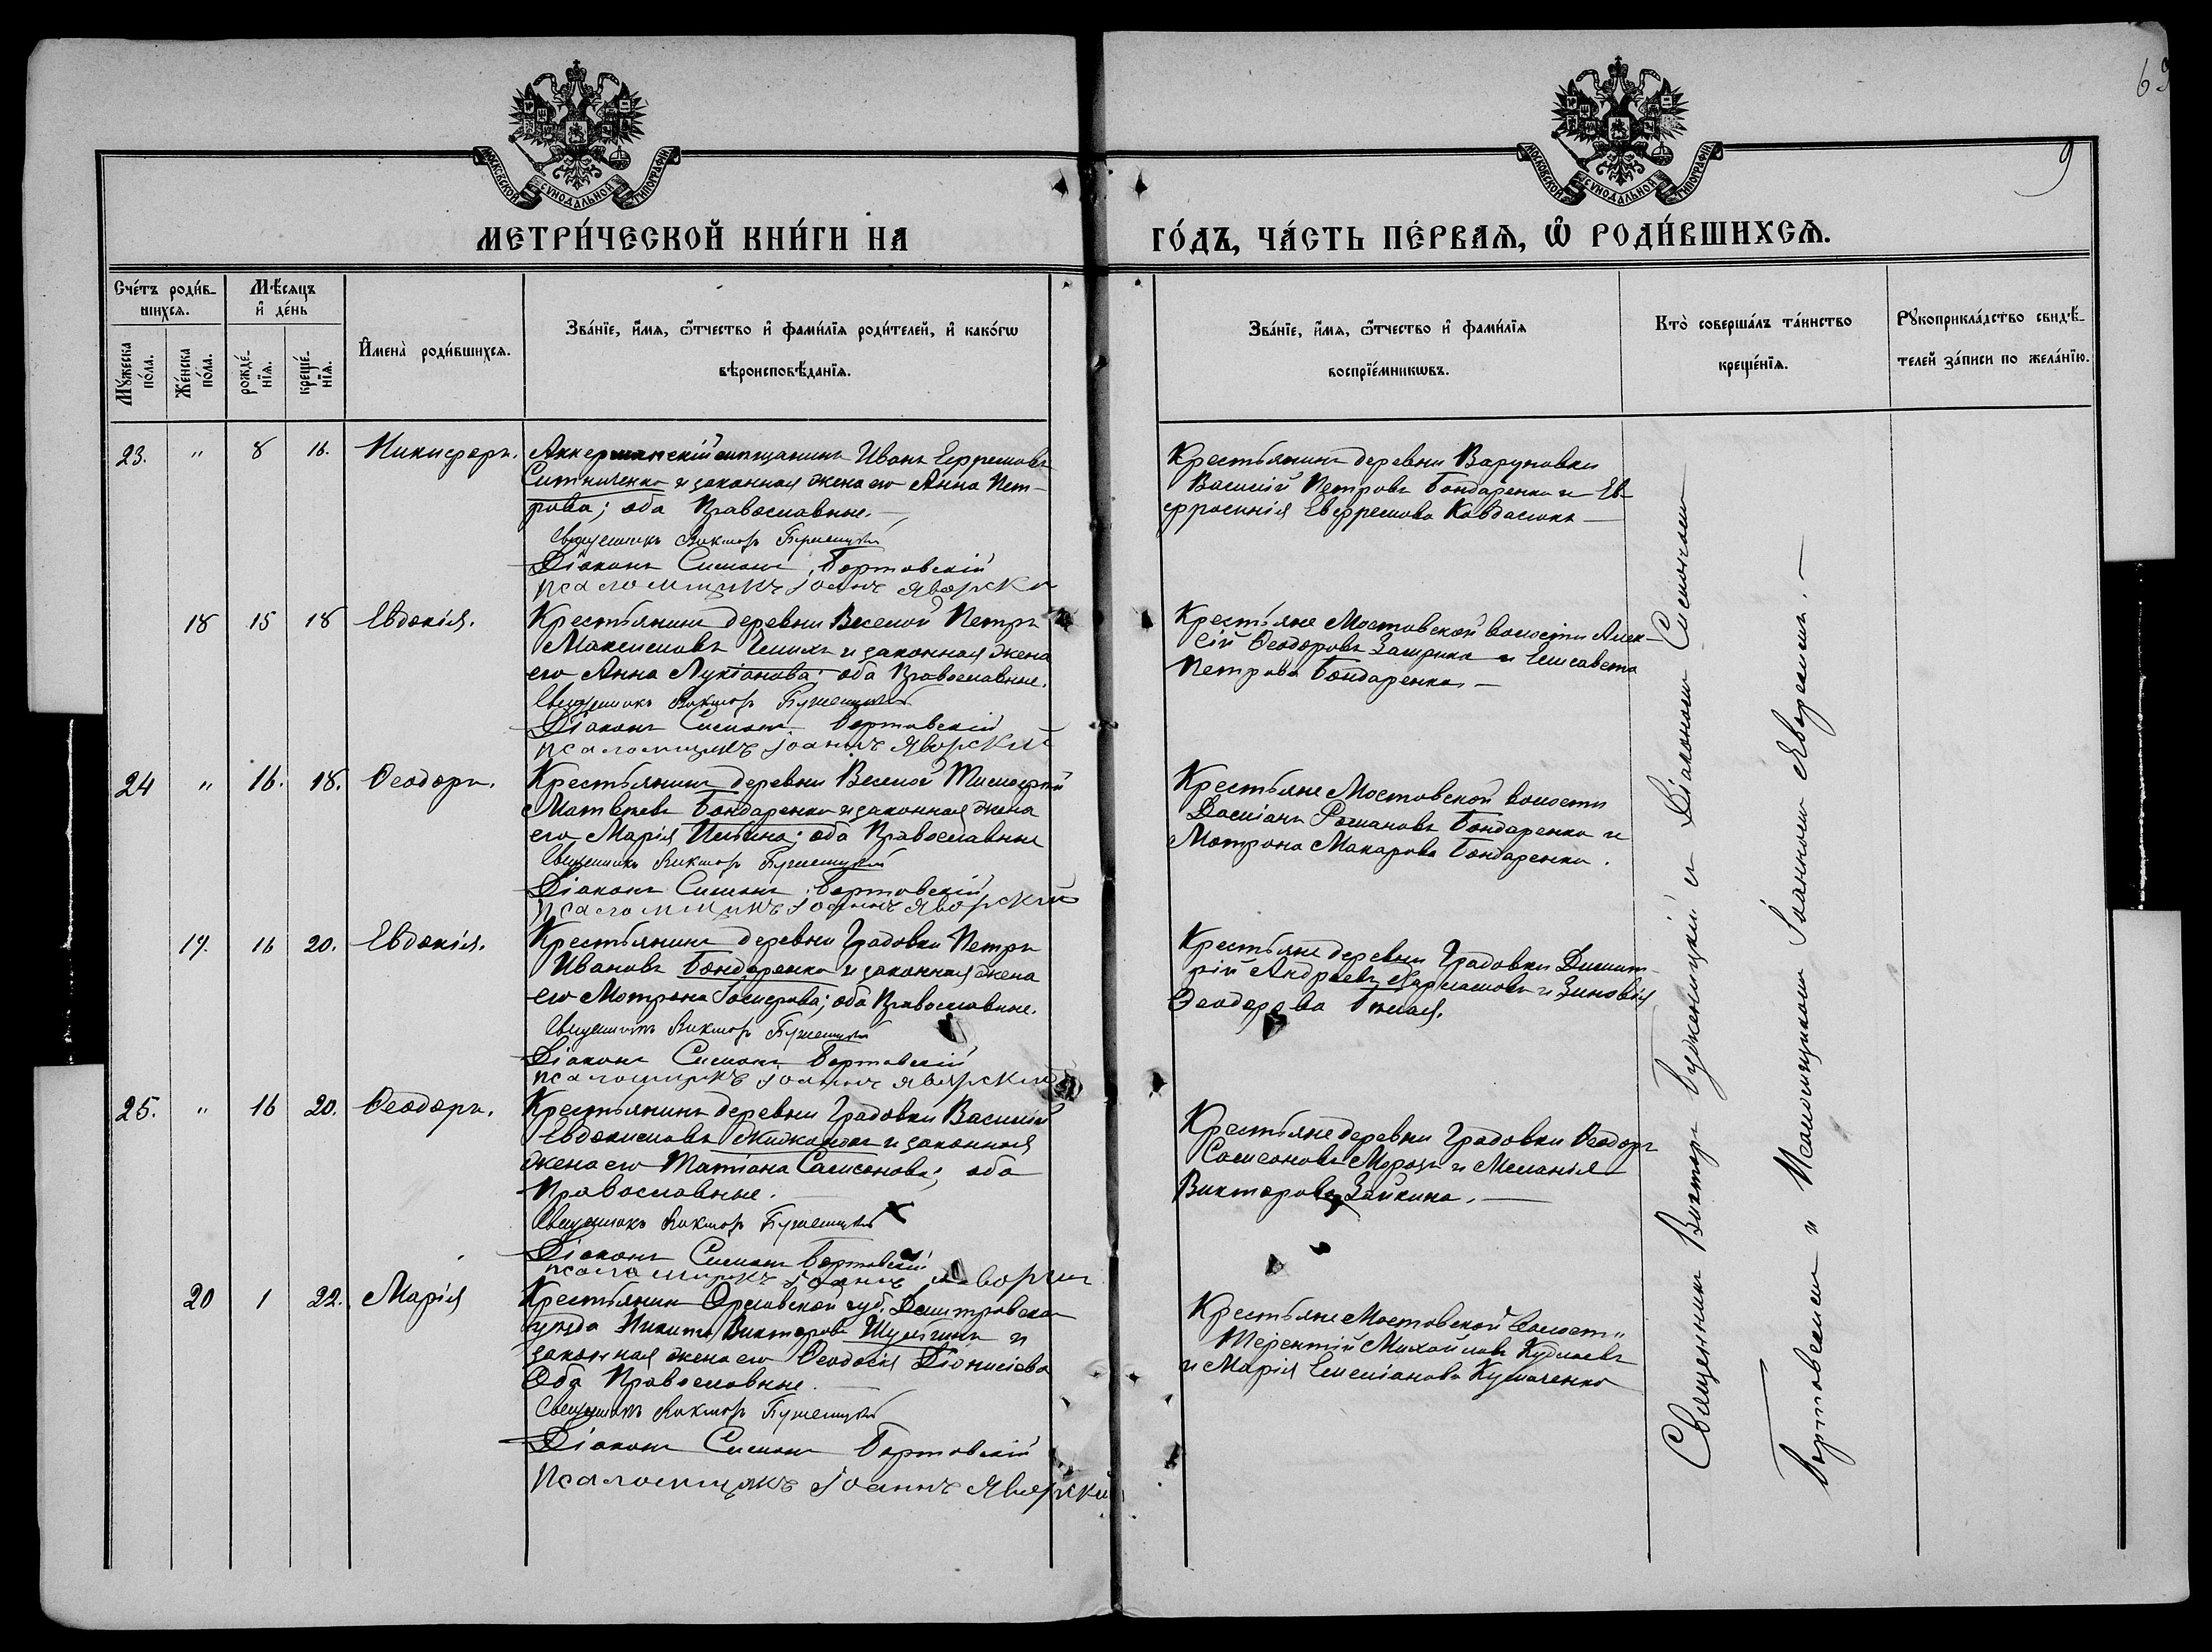 69
9
МОСКОВСКОЙ СѴНОДАЛЬНОЙ ТИПОГРАФІИ
МОСКОВСКОЙ СѴНОДАЛЬНОЙ ТИПОГРАФІИ
МЕТРИ́ЧЕСКОЙ КНИ́ГИ НА ГО́ДЪ, ЧА́СТЬ ПЕ́РВАѦ, Ѽ РОДИ́ВШИХСѦ.
Сче́тъ роди́в-
шихсѧ.
Мꙋ́жеска
по́ла.
Же́нска
по́ла.
Мѣ́сѧцъ
и҆ де́нь
рожде́-
нїѧ.
креще́-
нїѧ.
И҆мена̀ роди́вшихсѧ.
Зва́нїе, и҆́мѧ, ѻ҆́тчество и҆ фами́лїѧ роди́телей, и҆ како́гѡ
вѣроисповѣ́данїѧ.
Зва́нїе, и҆́мѧ, ѻ҆́тчество и҆ фами́лїѧ
воспрїе́мникѡвъ.
Кто̀ соверша́лъ та́инство
креще́нїѧ.
Рꙋкоприкла́дство свидѣ́-
телей за́писи по жела́нїю.
23. " 8 16. Никифоръ.
Аккерманскій мѣщанинъ Иванъ Ефремовъ
Ситниченко и законная жена его Анна Пет-
рова; оба Православные.
Священникъ Викторъ
Діаконъ Симеонъ Бортовскій
Псаломщикъ Іоаннъ Яворски
Крестьянинъ деревни Варуновки
Василій Петровъ Бондаренко и Ев-
фросинія Евфремова
18 15 18 Евдокія.
Крестьянинъ деревни Веселой Петръ
Максимовъ и законная жена
его Анна Лукіанова; оба Православные.
Священникъ Викторъ
Діаконъ Симеонъ Бортовскій
Псаломщикъ Іоаннъ Яворский
Крестьяне Мостовской волости Алек-
сій Ѳеодоровъ и Елисавета
Петрова Бондаренко.
24 " 16. 18. Ѳеодоръ.
Крестьянинъ деревни Веселой Тимофей
Матвѣевъ Бондаренко и законная жена
его Марія Ильина; оба Православные
Священникъ Викторъ
Діаконъ Симеонъ Бортовскій
Псаломщикъ Іоаннъ Яворский
Крестьяне Мостовской волости
Даміанъ Романовъ Бондаренко и
Мотрона Макарова Бондаренко.
19. 16 20. Евдокія.
Крестьянинъ деревни Градовки Петръ
Ивановъ Бондаренко и законная жена
его Мотрона; оба Православные.
Священникъ Викторъ
Діаконъ Симеонъ Бортовскій
Псаломщикъ Іоаннъ Яворский
Крестьяне деревни Градовки Димит-
рій Андреевъ и Зиновія
Ѳеодорова Бѣлая.
25. " 16 20. Ѳеодоръ.
Крестьянинъ деревни Градовки Василій
Евдокимовъ и законная
жена его Татіана Самсонова; оба
Православные.
Священникъ Викторъ
Діаконъ Симеонъ Бортовскій
Псаломщикъ Іоаннъ
Крестьяне деревни Градовки Ѳеодоръ
Самсоновъ Морозъ и Меланія
Викторова Зайкина.
20 1 22. Марія
Крестьянинъ Орловской губ. Дмитровска
уѣзда Никита Викторовъ и
законная жена его Ѳеодосія Діонисіева
Оба Православные.
Священникъ Викторъ
Діаконъ Симеонъ Бортовскій
Псаломщикъ Іоаннъ Яворский
Крестьяне Мостовской Волости
Терентій Михайловъ
и Марія Емеліанова
Священникъ Викторъ съ Діакономъ Симеономъ
Бортовскимъ и Псаломщикомъ Іоанномъ Яворскимъ.